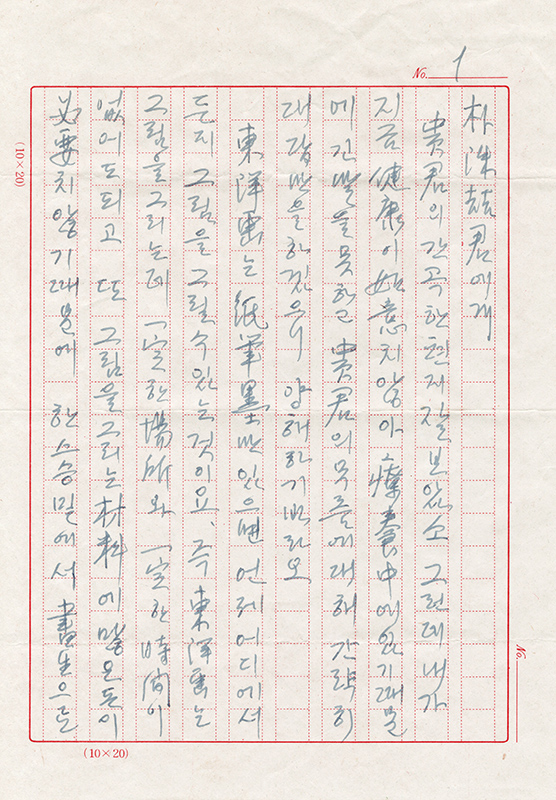 No. 1
朴洙喆君에게
貴君의 간곡한 편지 잘 보았소 그런데 내가
지금 健康이 如意치 않아 療養中에 있기 때문
에 긴 말을 못하고 貴君의 물음에 대해 간략히
대답만을 하겠으니 양해하기 바라오
東洋畵는 紙筆墨만 있으면 언제 어디에서
든지 그림을 그릴 수 있는 것이요. 즉 東洋畵는
그림을 그리는데 一定한 場所와 一定한 時間이
없어도 되고 또 그림을 그리는 材料에 많은 돈이
必要치 않기 때문에 한 스승 밑에서 畵生으로
(10×20)
(10×20)
No.